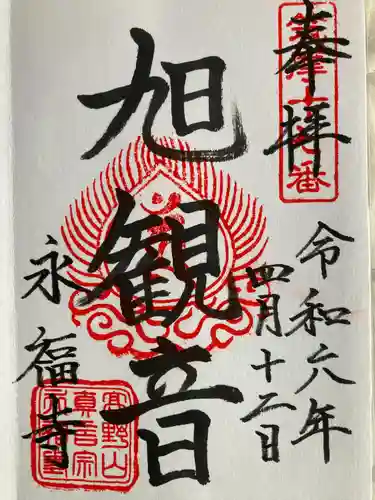 奉拝
令和六年
四月十二日
旭観音
永福寺
高野山
真言宗
永福寺